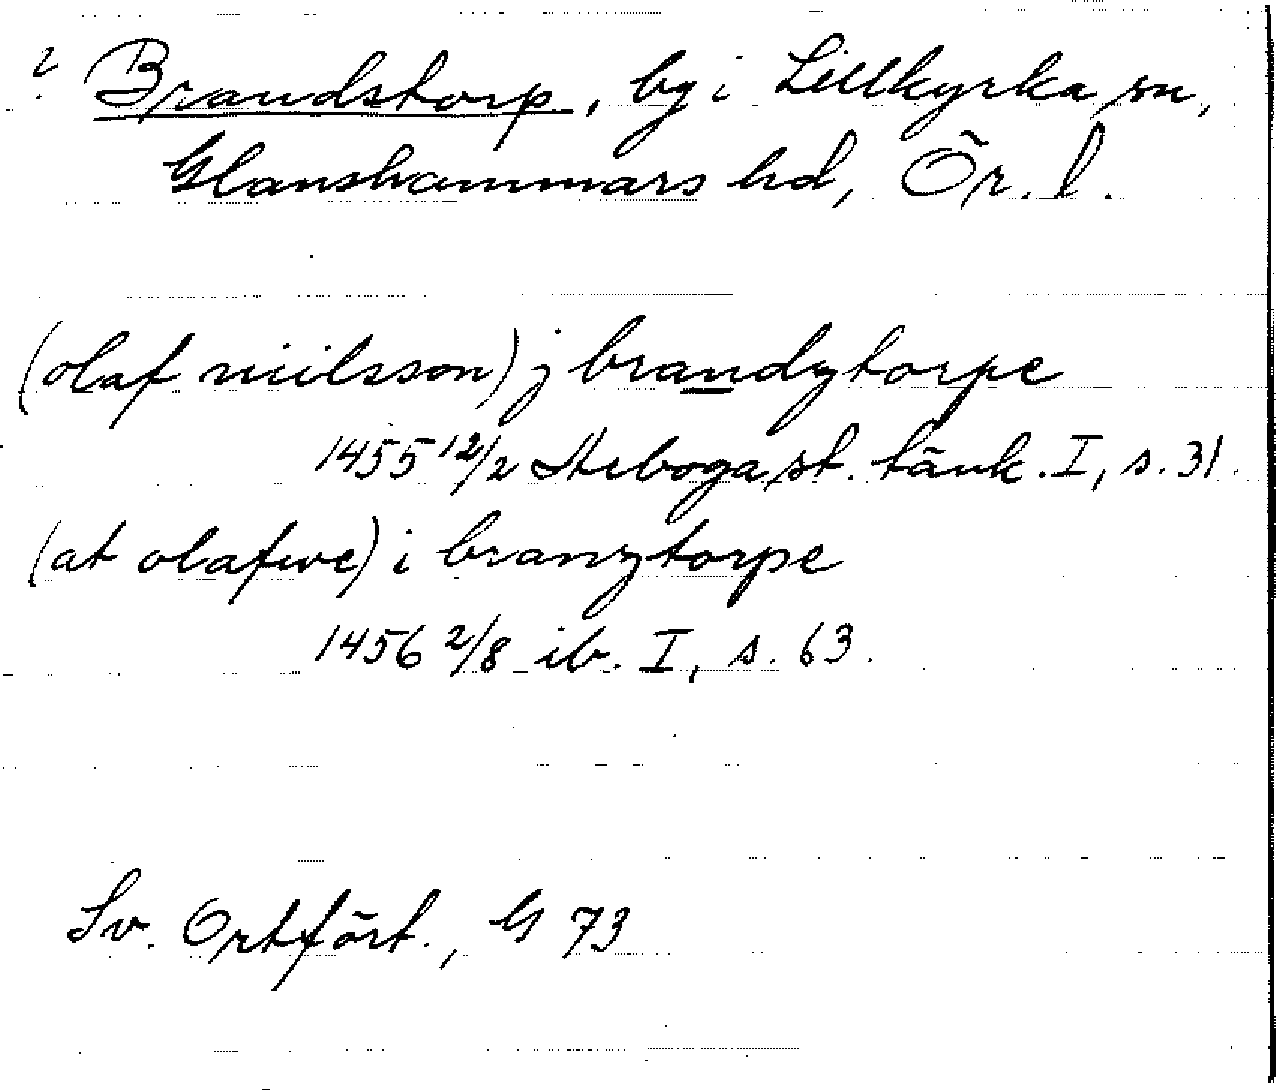 ? Brandstorp, by i Lillkyrka sn,
Glanshammars hd, Ör. l.
(olaf niilsson) j brandztorpe
1455 12/2 Arboga st. tänk. I, s. 31.
(at olafwe) i branztorpe
1456 2/8 ib. I, s. 63.
Sv. Ortfört., G 73